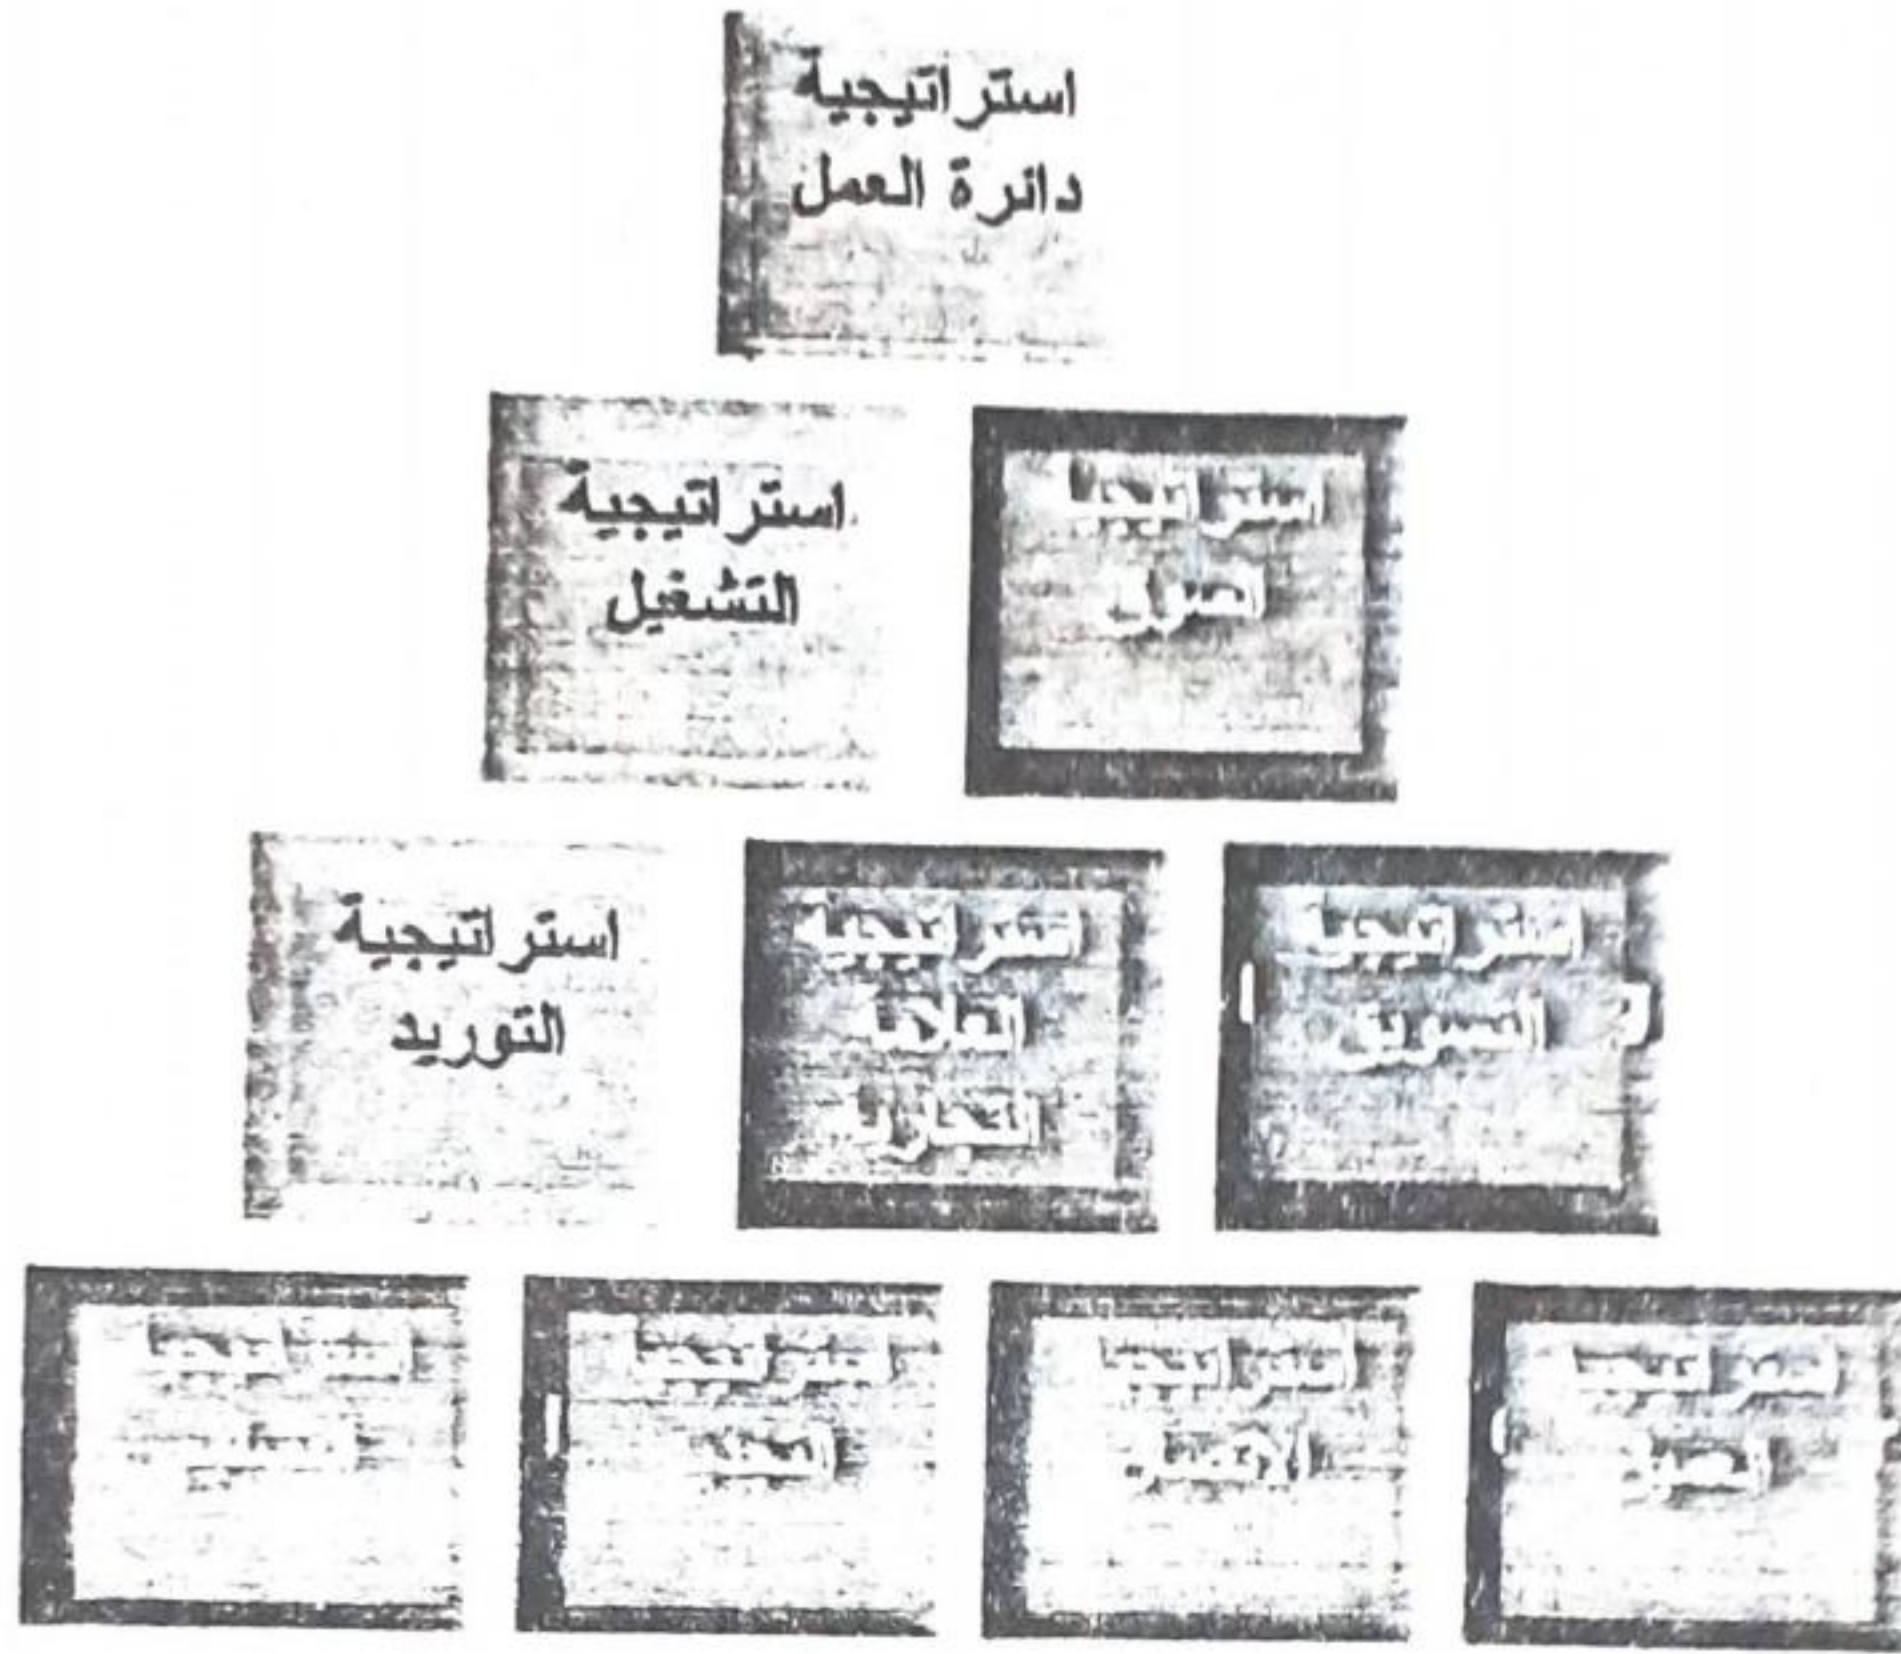 استراتيجية
دائرة العمل
استراتيجية
السوق
استراتيجية
التشغيل
استراتيجية
التسويق
استراتيجية
العلامة
التجارية
استراتيجية
التوريد
استراتيجية
العميل
استراتيجية
الاتصال
استراتيجية
استراتيجية